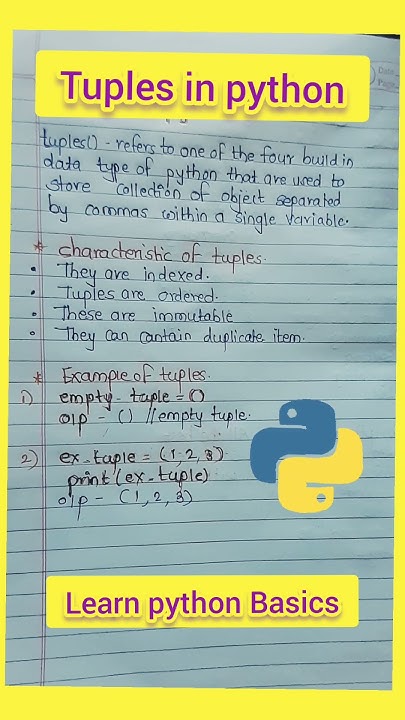 Date
Page
Tuples in python
tuples() - refers to one of the four build in
data type of python that are used to
store collection of object separated
by commas within a single variable.
* characteristic of tuples.
• They are indexed.
• Tuples are ordered.
• These are immutable
• They can cantain duplicate item.
* Example of tuples.
1) empty-tuple = ()
o/p - () //empty tuple.
2) ex-tuple = (1,2,3)
print(ex-tuple)
o/p - (1,2,3)
Learn python Basics